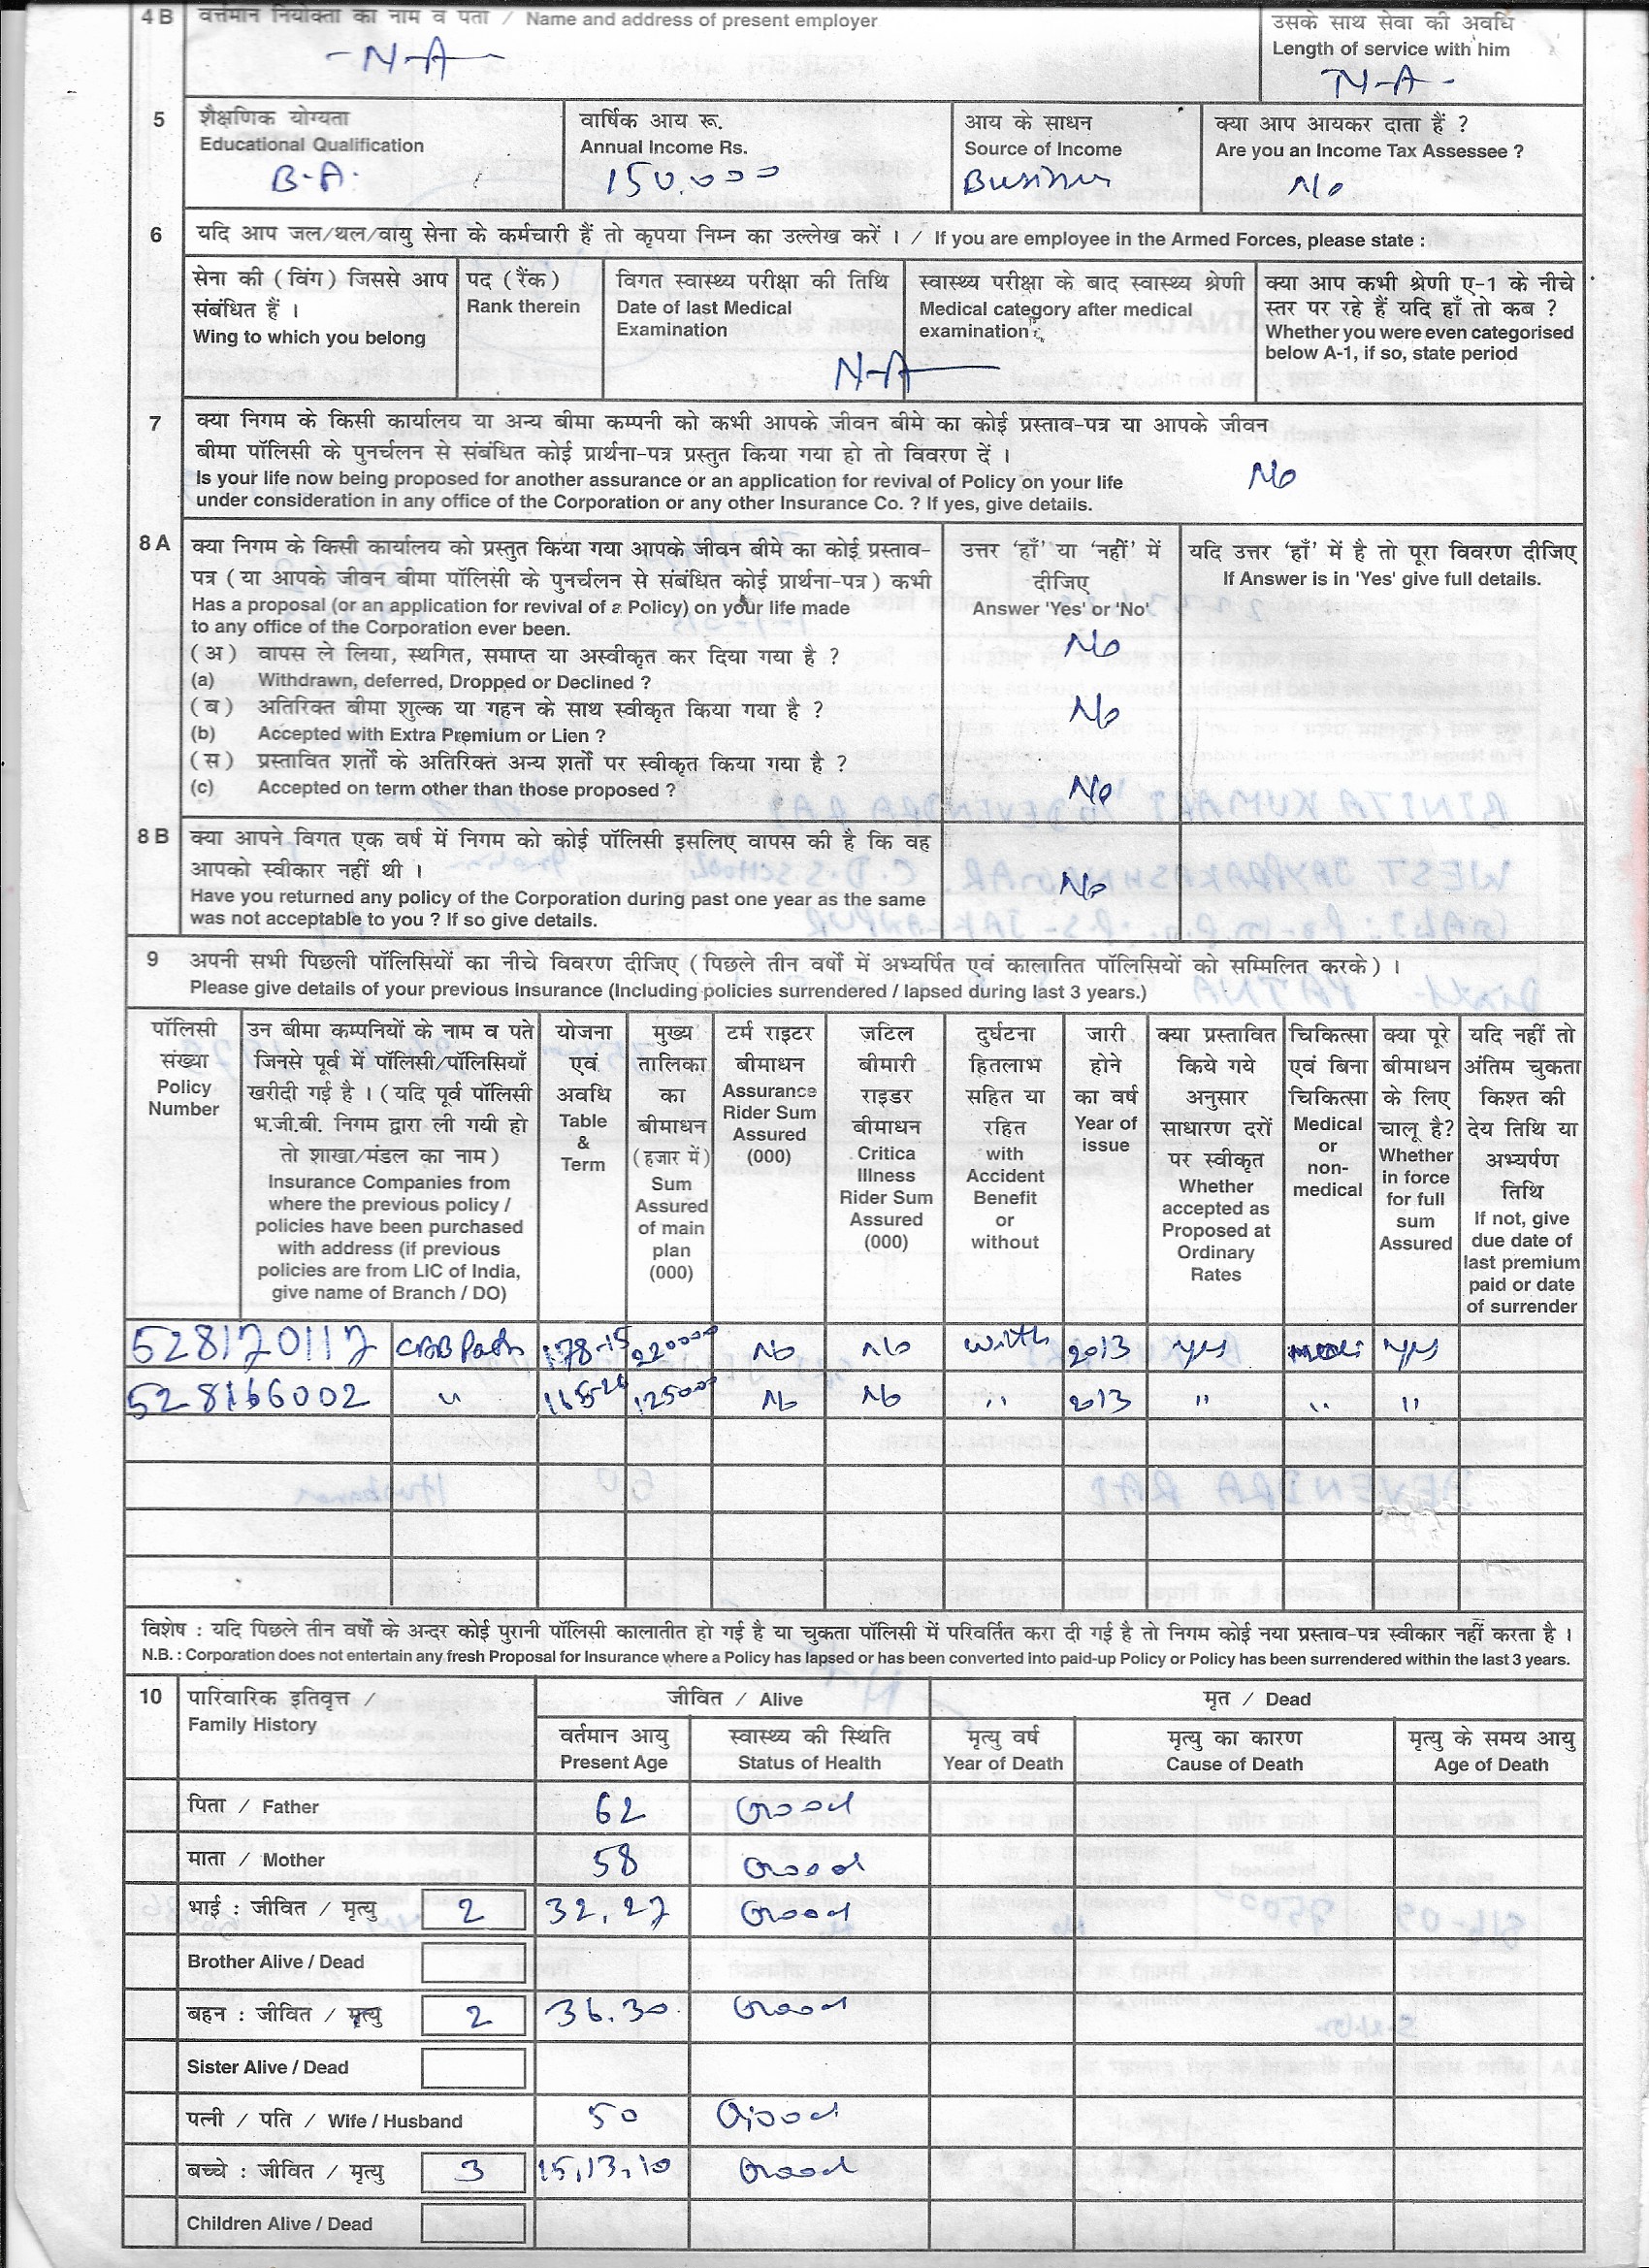 4 B वर्त्तमान नियोक्ता का नाम व पता / Name and address of present employer
-N-A-
उसके साथ सेवा की अवधि
Length of service with him
N-A-
5 शैक्षणिक योग्यता
Educational Qualification
B-A.
वार्षिक आय रू.
Annual Income Rs.
150.000
आय के साधन
Source of Income
Business
क्या आप आयकर दाता हैं ?
Are you an Income Tax Assessee ?
No
6 यदि आप जल/थल/वायु सेना के कर्मचारी हैं तो कृपया निम्न का उल्लेख करें । / If you are employee in the Armed Forces, please state :
सेना की (विंग) जिससे आप
संबंधित हैं ।
Wing to which you belong
पद (रैंक)
Rank therein
विगत स्वास्थ्य परीक्षा की तिथि
Date of last Medical
Examination
स्वास्थ्य परीक्षा के बाद स्वास्थ्य श्रेणी
Medical category after medical
examination
क्या आप कभी श्रेणी ए-1 के नीचे
स्तर पर रहे हैं यदि हाँ तो कब ?
Whether you were even categorised
below A-1, if so, state period
N-A
7 क्या निगम के किसी कार्यालय या अन्य बीमा कम्पनी को कभी आपके जीवन बीमे का कोई प्रस्ताव-पत्र या आपके जीवन
बीमा पॉलिसी के पुनर्चलन से संबंधित कोई प्रार्थना-पत्र प्रस्तुत किया गया हो तो विवरण दें ।
Is your life now being proposed for another assurance or an application for revival of Policy on your life
under consideration in any office of the Corporation or any other Insurance Co. ? If yes, give details.
No
8 A क्या निगम के किसी कार्यालय को प्रस्तुत किया गया आपके जीवन बीमे का कोई प्रस्ताव-
पत्र (या आपके जीवन बीमा पॉलिसी के पुनर्चलन से संबंधित कोई प्रार्थना-पत्र) कभी
Has a proposal (or an application for revival of a Policy) on your life made
to any office of the Corporation ever been.
उत्तर 'हाँ' या 'नहीं' में
दीजिए
Answer 'Yes' or 'No'
यदि उत्तर 'हाँ' में है तो पूरा विवरण दीजिए
If Answer is in 'Yes' give full details.
(अ) वापस ले लिया, स्थगित, समाप्त या अस्वीकृत कर दिया गया है ?
(a) Withdrawn, deferred, Dropped or Declined ?
No
(ब) अतिरिक्त बीमा शुल्क या गहन के साथ स्वीकृत किया गया है ?
(b) Accepted with Extra Premium or Lien ?
No
(स) प्रस्तावित शर्तों के अतिरिक्त अन्य शर्तों पर स्वीकृत किया गया है ?
(c) Accepted on term other than those proposed ?
No
8 B क्या आपने विगत एक वर्ष में निगम को कोई पॉलिसी इसलिए वापस की है कि वह
आपको स्वीकार नहीं थी ।
Have you returned any policy of the Corporation during past one year as the same
was not acceptable to you ? If so give details.
No
9 अपनी सभी पिछली पॉलिसियों का नीचे विवरण दीजिए (पिछले तीन वर्षों में अभ्यर्पित एवं कालातित पॉलिसियों को सम्मिलित करके) ।
Please give details of your previous Insurance (Including policies surrendered / lapsed during last 3 years.)
पॉलिसी
संख्या
Policy
Number
उन बीमा कम्पनियों के नाम व पते
जिनसे पूर्व में पॉलिसी/पॉलिसियाँ
खरीदी गई है । (यदि पूर्व पॉलिसी
भ.जी.बी. निगम द्वारा ली गयी हो
तो शाखा/मंडल का नाम)
Insurance Companies from
where the previous policy /
policies have been purchased
with address (if previous
policies are from LIC of India,
give name of Branch / DO)
योजना
एवं
अवधि
Table
&
Term
मुख्य
तालिका
का
बीमाधन
(हजार में)
Sum
Assured
of main
plan
(000)
टर्म राइटर
बीमाधन
Assurance
Rider Sum
Assured
(000)
ज़टिल
बीमारी
राइडर
बीमाधन
Critica
Illness
Rider Sum
Assured
(000)
दुर्घटना
हितलाभ
सहित या
रहित
with
Accident
Benefit
or
without
जारी
होने
का वर्ष
Year of
issue
क्या प्रस्तावित
किये गये
अनुसार
साधारण दरों
पर स्वीकृत
Whether
accepted as
Proposed at
Ordinary
Rates
चिकित्सा
एवं बिना
चिकित्सा
Medical
or
non-
medical
क्या पूरे
बीमाधन
के लिए
चालू है?
Whether
in force
for full
sum
Assured
यदि नहीं तो
अंतिम चुकता
किश्त की
देय तिथि या
अभ्यर्पण
तिथि
If not, give
due date of
last premium
paid or date
of surrender
528170117 178-15 220000 No No with 2013 yes yes
528166002 " 125000 No No " 2013 " " "
विशेष : यदि पिछले तीन वर्षों के अन्दर कोई पुरानी पॉलिसी कालातीत हो गई है या चुकता पॉलिसी में परिवर्तित करा दी गई है तो निगम कोई नया प्रस्ताव-पत्र स्वीकार नहीं करता है ।
N.B. : Corporation does not entertain any fresh Proposal for Insurance where a Policy has lapsed or has been converted into paid-up Policy or Policy has been surrendered within the last 3 years.
10 पारिवारिक इतिवृत्त /
Family History
जीवित / Alive
मृत / Dead
वर्तमान आयु
Present Age
स्वास्थ्य की स्थिति
Status of Health
मृत्यु वर्ष
Year of Death
मृत्यु का कारण
Cause of Death
मृत्यु के समय आयु
Age of Death
पिता / Father 62 Good
माता / Mother 58 Good
भाई : जीवित / मृत्यु 2 32, 27 Good
Brother Alive / Dead
बहन : जीवित / मृत्यु 2 36.30 Good
Sister Alive / Dead
पत्नी / पति / Wife / Husband 50 Good
बच्चे : जीवित / मृत्यु 3 15,13,10 Good
Children Alive / Dead